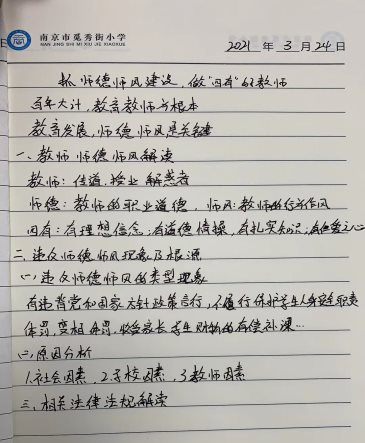 南京市觅秀街小学
NAN JING SHI MI XIU JIE XIAOXUE
2021 年 3 月 24 日
抓师德师风建设，做“四有”好教师
百年大计，教育教师为根本
教育发展，师德师风是关键
一、教师师德师风解读
教师：传道、授业 解惑者
师德：教师的职业道德，师风：教师的行为作风
四有：有理想信念，有道德情操，有扎实知识，有仁爱之心
二、违反师德师风现象及根源
(一)违反师德师风的类型现象
有违背党和国家方针政策言行，不履行保护学生人身安全职责
体罚，变相体罚，收受家长学生财物的有偿补课…
(二)原因分析
1.社会因素，2.学校因素，3.教师因素
三、相关法律法规解读